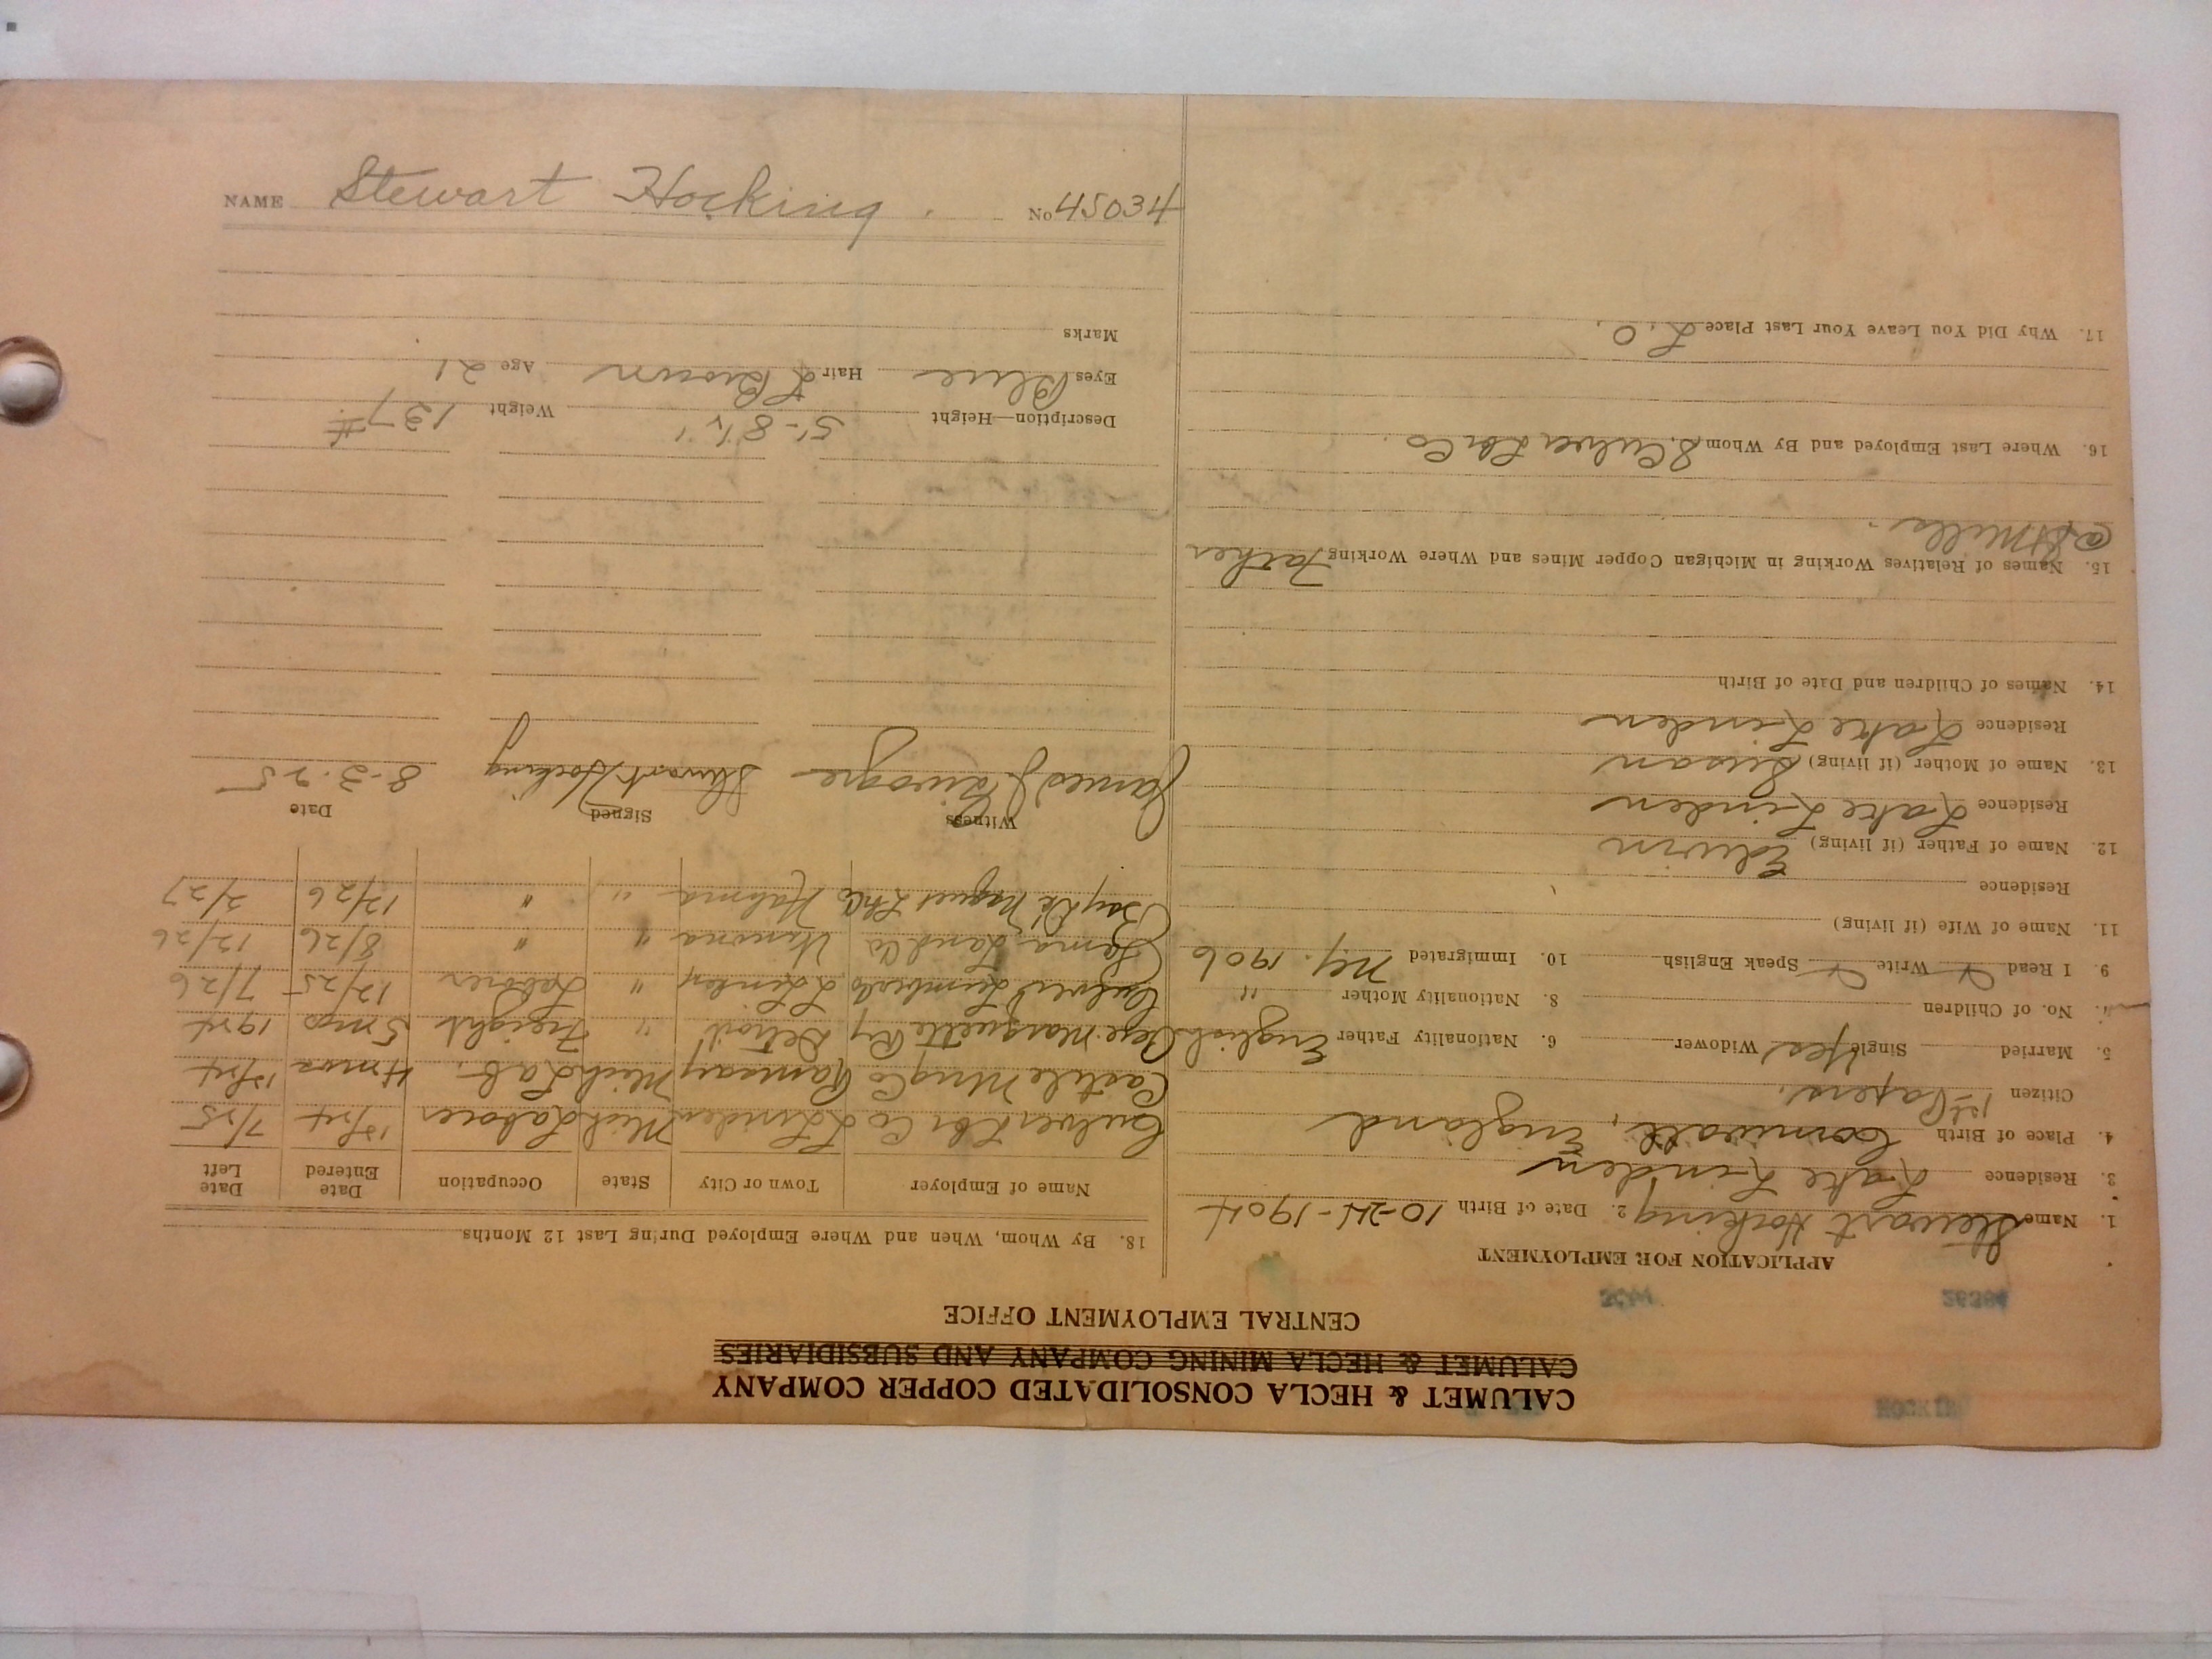 CALUMET & HECLA CONSOLIDATED COPPER COMPANY
CALUMET & HECLA MINING COMPANY AND SUBSIDIARIES
CENTRAL EMPLOYMENT OFFICE
APPLICATION FOR EMPLOYMENT
1. Name Stewart Hocking 2. Date of Birth 10-24-1904
3. Residence Lake Linden
4. Place of Birth Cornwall, England
Citizen 1st Papers.
5. Married Single Yes Widower 6. Nationality Father English
7. No. of Children 8. Nationality Mother "
9. I Read Write Speak English 10. Immigrated N.Y. 1906
11. Name of Wife (if living)
Residence
12. Name of Father (if living) Edwin
Residence Lake Linden
13. Name of Mother (if living) Susan
Residence Lake Linden
14. Names of Children and Date of Birth
15. Names of Relatives Working in Michigan Copper Mines and Where Working Father
Mills.
16. Where Last Employed and By Whom S. Culver Lbr Co.
17. Why Did You Leave Your Last Place L.O.
18. By Whom, When and Where Employed During Last 12 Months
Name of Employer Town or City State Occupation Date Entered Date Left
Culver Lbr Co L Linden Mich Laborer 7/25
Castile Mng Co Ramsay Mich Lab. 4 mos
Pere Marquette Ry Detroit " Freight 5 mos 1924
Culver Lumber Co L Linden " Laborer 12/25 7/26
Land Co " " 8/26 12/26
Bay De Noquet Co " " 12/26 2/27
Witness Signed Date
James Stewart Hocking 8-3-25
Description—Height 5'-8½" Weight 137#
Eyes Blue Hair L Brown Age 21
Marks
NAME Stewart Hocking. No 45034